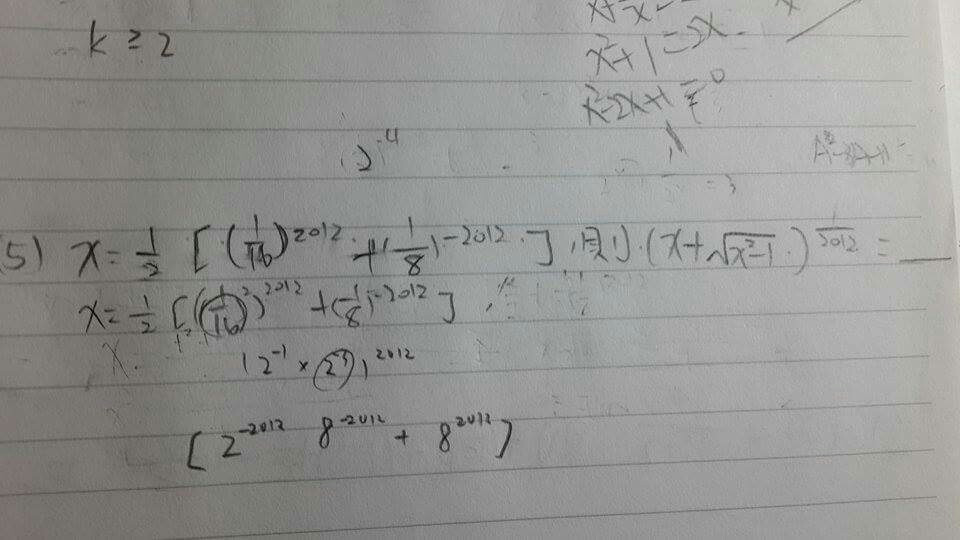 k ≥ 2
x²+1=2x
x²-2x+1=0
2⁻⁴
(5) x = 1/2 [(1/16)²⁰¹² + (1/8)⁻²⁰¹²], 則 (x+√(x²-1))^(1/2012) = ___
x = 1/2 [((1/16)²)²⁰¹² + (1/8)⁻²⁰¹²]
(2⁻¹ × 2⁻³)²⁰¹²
[2⁻²⁰¹² 8⁻²⁰¹² + 8²⁰¹²]